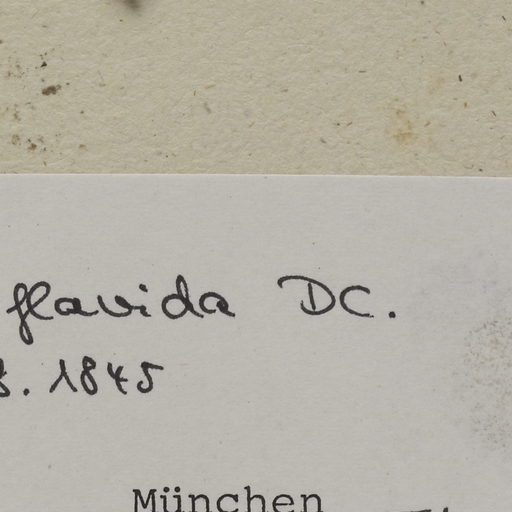 flavida DC.
. 1845
München